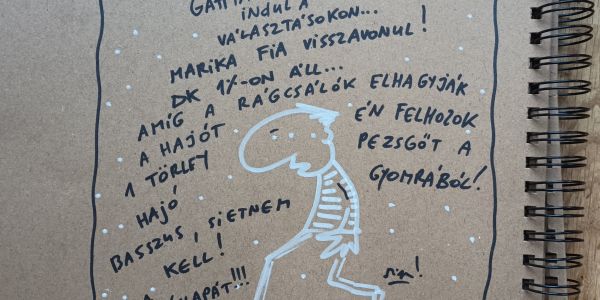 INDUL A
VÁLASZTÁSOKON...
MARIKA FIA VISSZAVONUL!
DK 1%-ON ÁLL...
AMÍG A RÁGCSÁLÓK ELHAGYJÁK
A HAJÓT ÉN FELHOZOK
1 TÖRLEY PEZSGŐT A
HAJÓ GYOMRÁBÓL!
BASSZUS, SIETNEM
KELL!